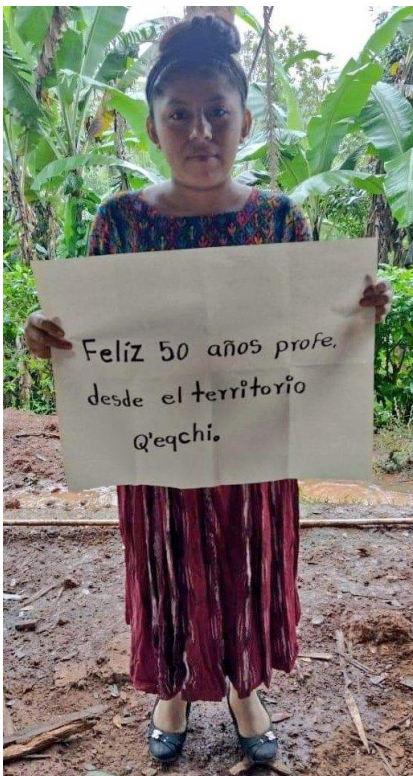 Felíz 50 años profe,
desde el territorio
Q'eqchi.